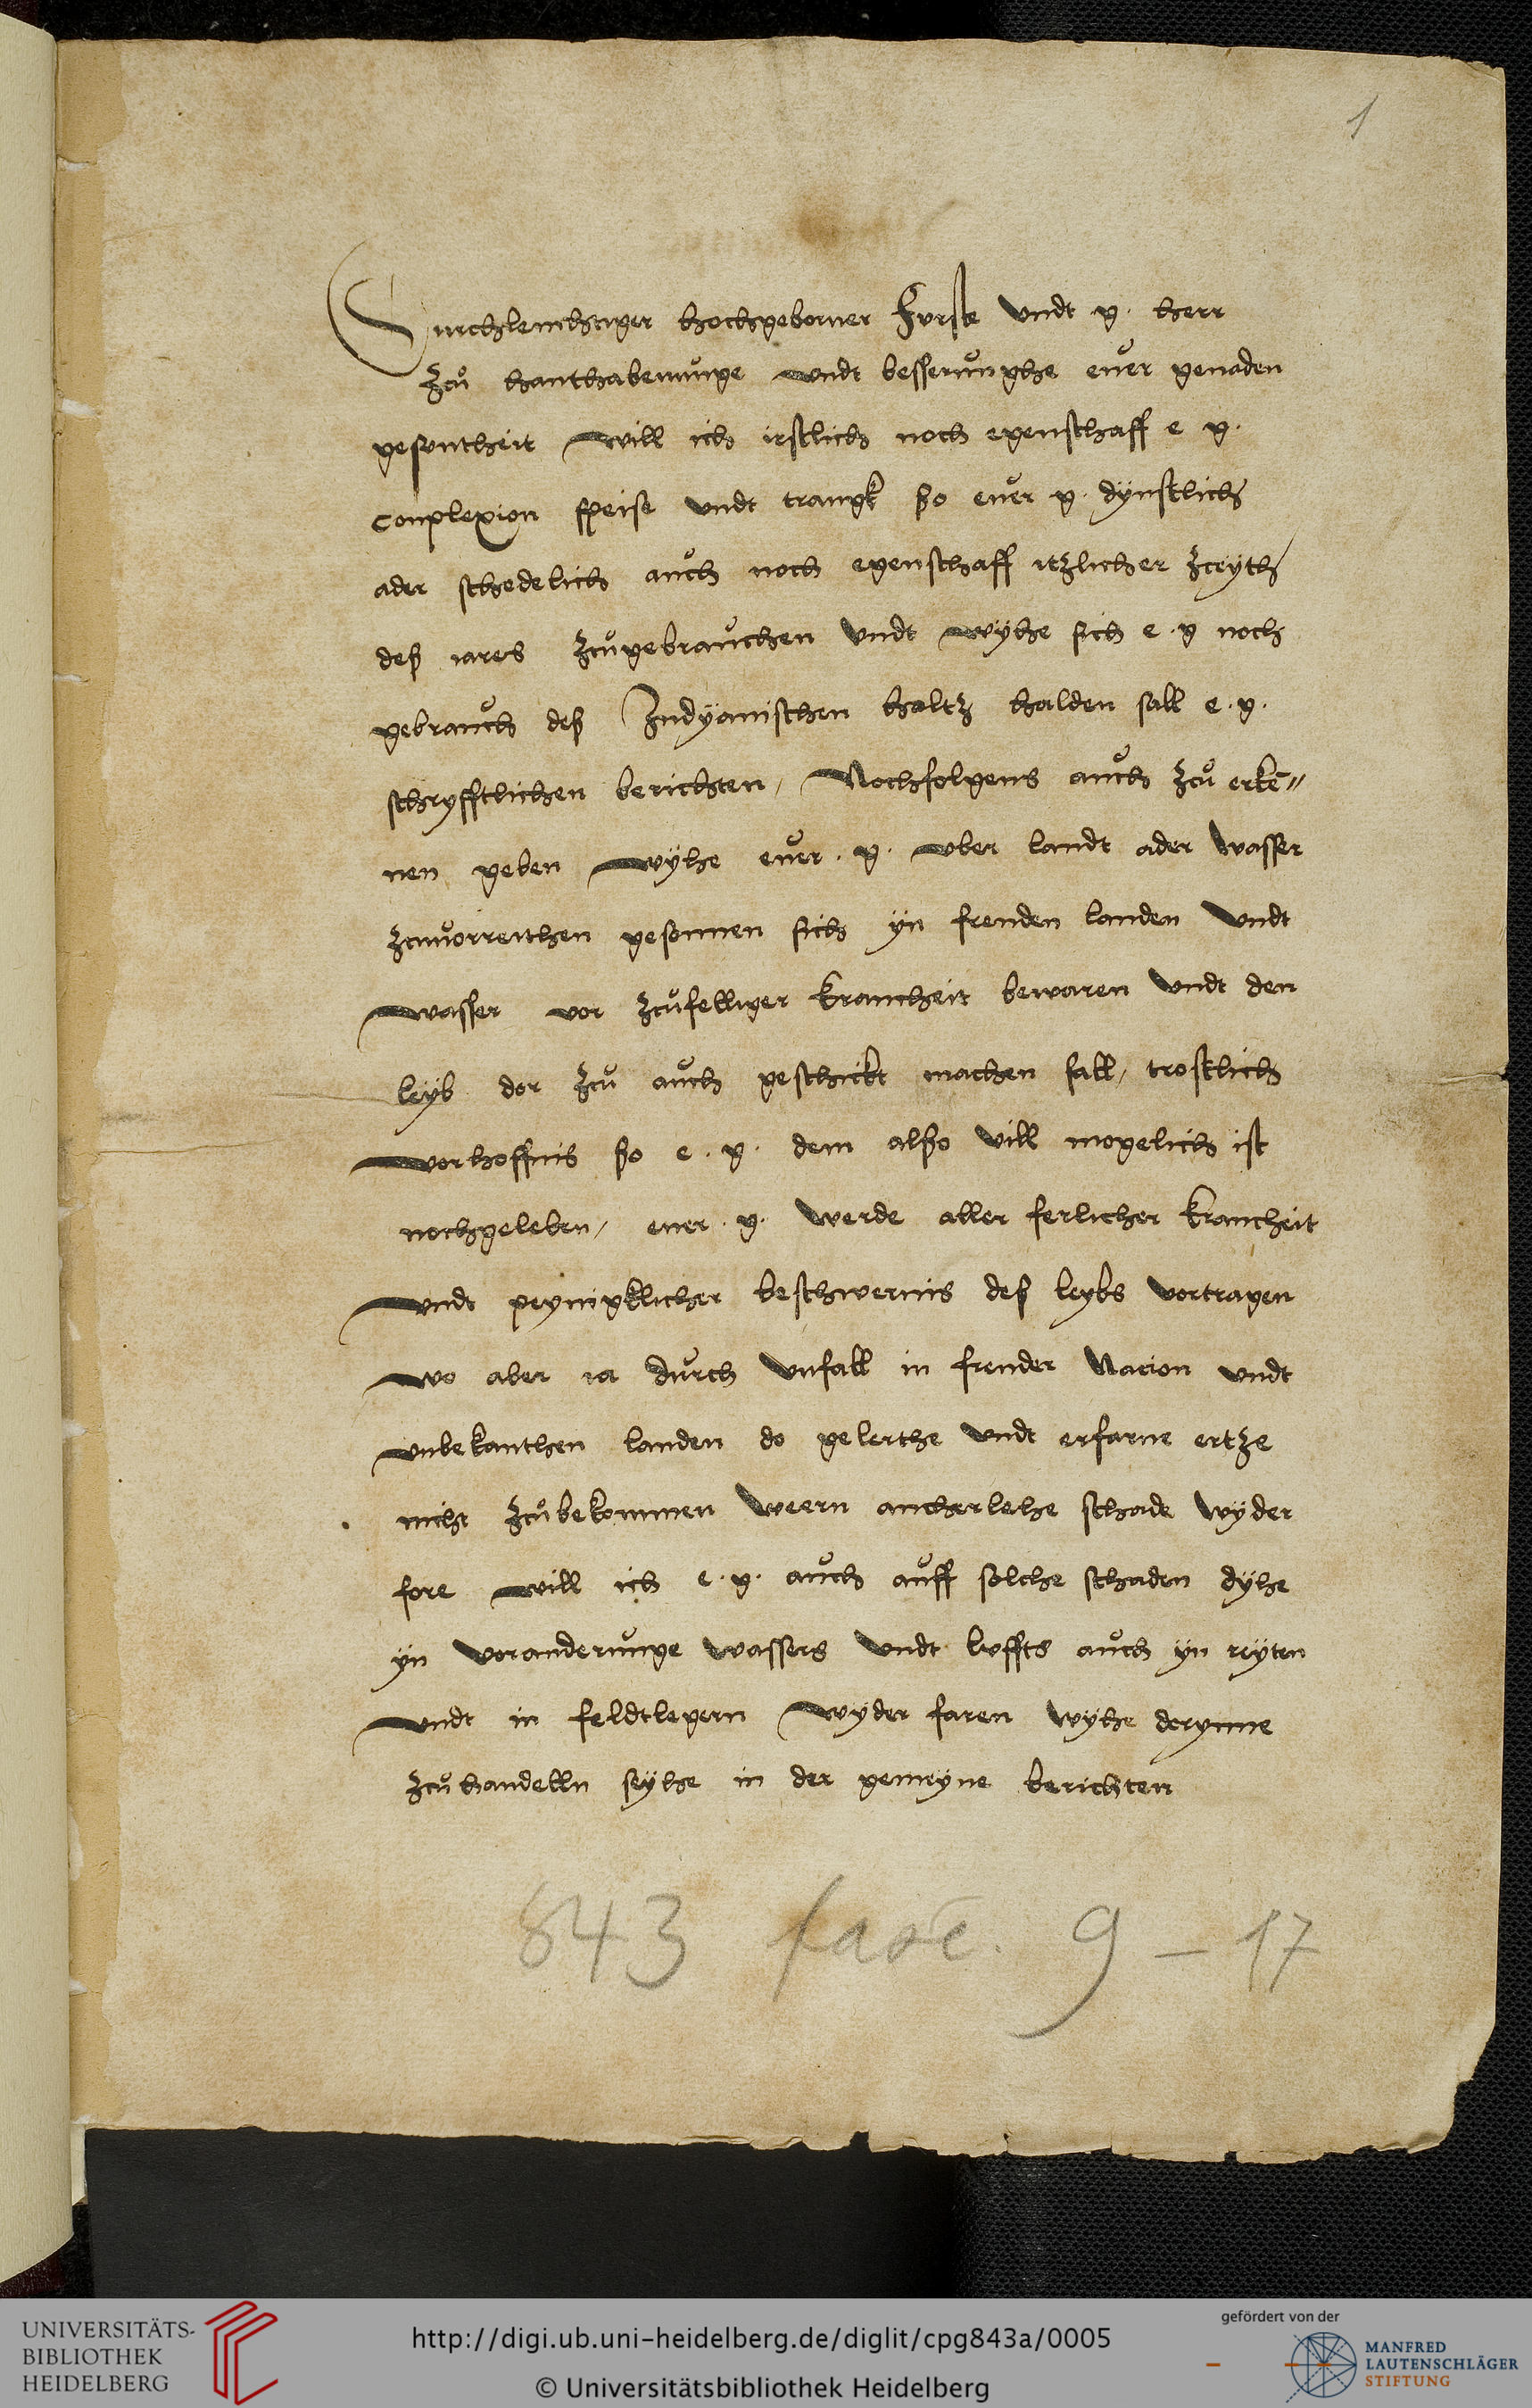 1
Durchleuchtiger hochgeborner Furste vndt g. herr
Zcu hanthabenunge vndt besserunghe euer genaden
gesontheit will ich irstlich noch egenschaff e g.
conplexion speise vndt trangk ßo euer g. dÿnstlich
ader schedelich auch noch egenschaff itzlicher zceÿth
deß iares zcugebrauchen vndt wÿhe sich e. g noch
gebrauch deß Jndÿanischen holtz halden sall e. g.
schryfftlichen berichten, Nochfolgens auch zcu erkē"
nen geben wÿhe euer. g. vber landt ader wasser
zcuuorreithen gesonnen sich ÿn frenden landen vndt
wasser vor zcufelliger kranckeit bewaren vndt den
leÿb dor zcu auch geschickt machen sall, trostlich
vorhoffnis ßo e. g. dem alßo vill mogelich ist
nochgeleben, euer. g. werde aller ferlicher kranckeit
vndt peynigklicher beschwernis deß leybs vortragen
wo aber ia durch vnfall in frender Nacion vndt
vnbekanthen landen do gelerthe vndt erfarne ertze
nicht zcubekommen weern ancherlehe schade wÿder
fore will ich e. g. auch auff solche schaden dÿhe
ÿn voranderunge wassers vndt luffts auch ÿn reÿten
vndt in feldtlegern wyder faren wÿhe dorynne
zcuhandelln seÿhe in der gemeÿne berichten
843 fasc. 9 - 17
UNIVERSITÄTS-
BIBLIOTHEK
HEIDELBERG
http://digi.ub.uni-heidelberg.de/diglit/cpg843a/0005
© Universitätsbibliothek Heidelberg
gefördert von der
MANFRED
LAUTENSCHLÄGER
STIFTUNG